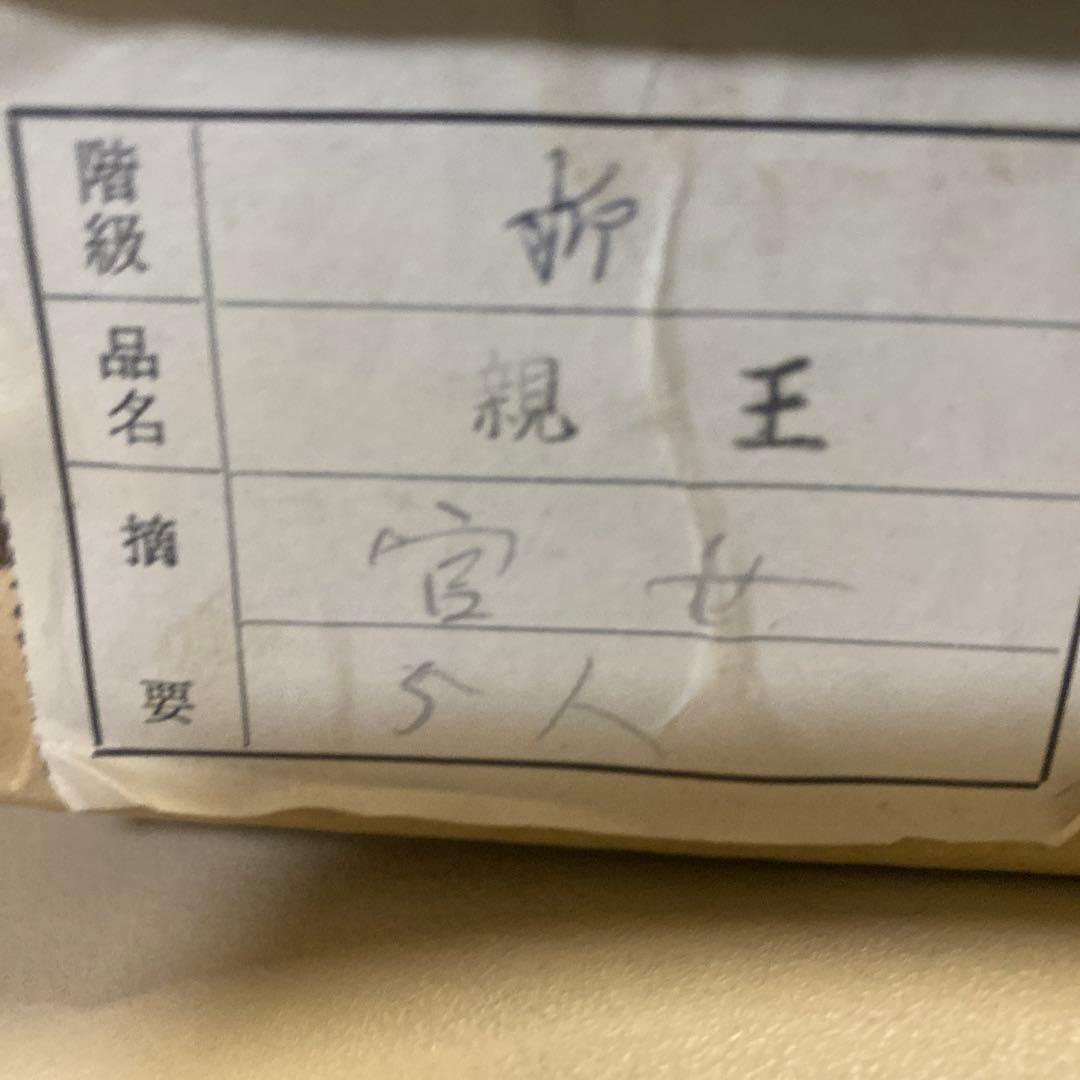 階級
品名 親王
摘要 官女
5人